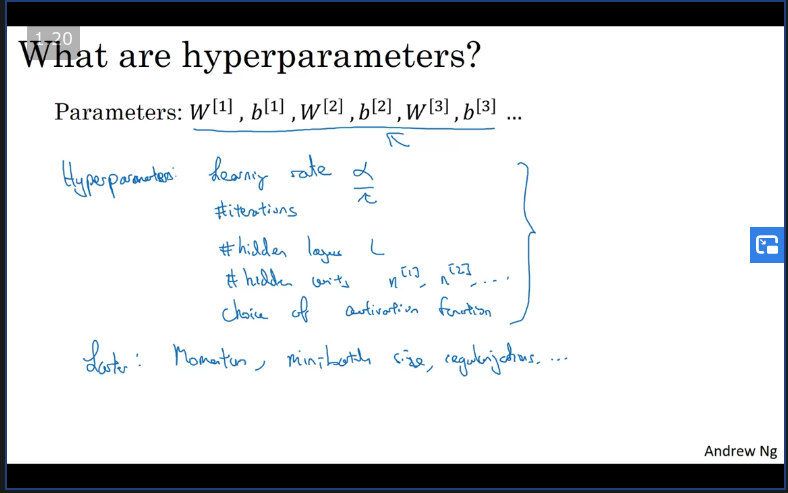 1.20
What are hyperparameters?
Parameters: W[1] , b[1] , W[2] , b[2] , W[3] , b[3] ...
Hyperparameters: Learning rate α
#iterations
#hidden layers L
# hidden units n[1], n[2], ....
Choice of activation function
Later: Momentum, mini-batch size, regularizations. ...
Andrew Ng